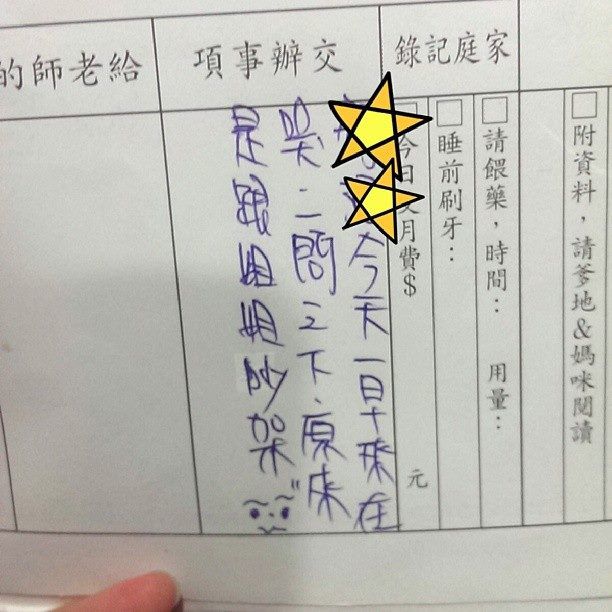 家庭記錄
交辦事項
給老師的
□附資料，請爹地&媽咪閱讀
□請餵藥，時間： 用量：
□睡前刷牙：
今日交月費$ 元
今天一早來在
哭、一問之下、原來
是跟姐姐吵架